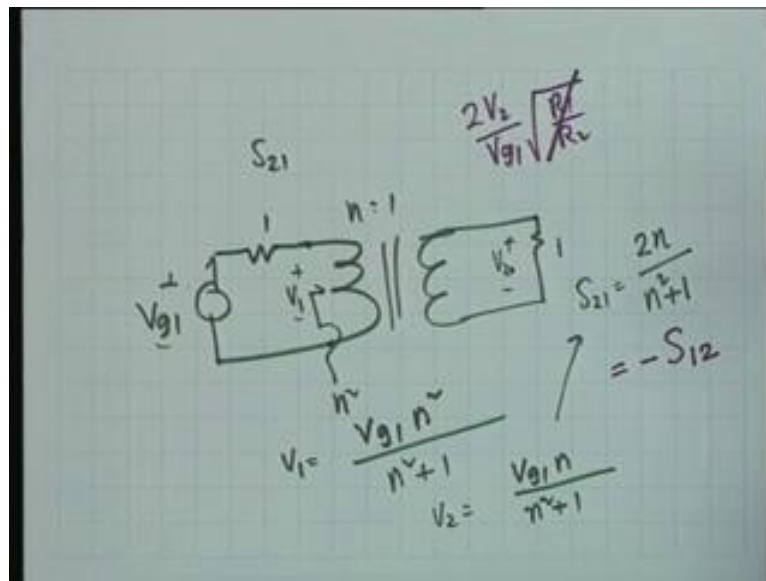 2V₂/Vg1 √(R1/R2)
S21
n : 1
1
+
Vg1
-
+
V1
-
+
V2
-
1
S21 = 2n/(n²+1)
= -S12
n²
V1 = Vg1 n²/(n²+1)
V2 = Vg1 n/(n²+1)